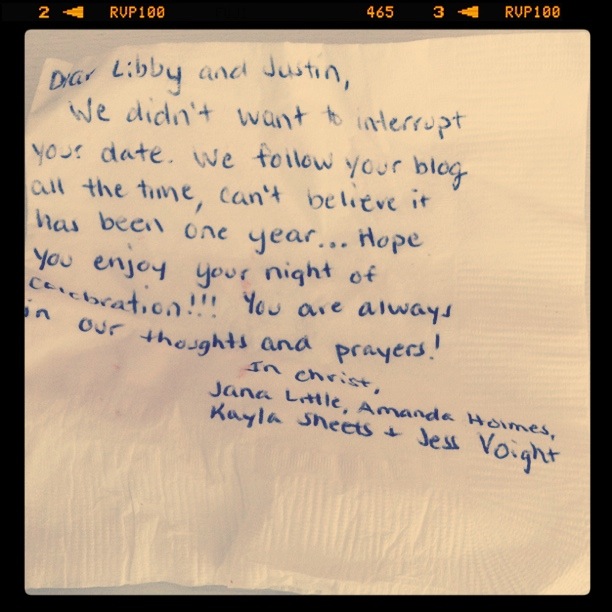 2 RVP100 465 3 RVP100
Dear Libby and Justin,
We didn't want to interrupt
your date. We follow your blog
all the time, can't believe it
has been one year... Hope
you enjoy your night of
celebration!!! You are always
in our thoughts and prayers!
In Christ,
Jana Little, Amanda Holmes,
Kayla Sheets + Jess Voight